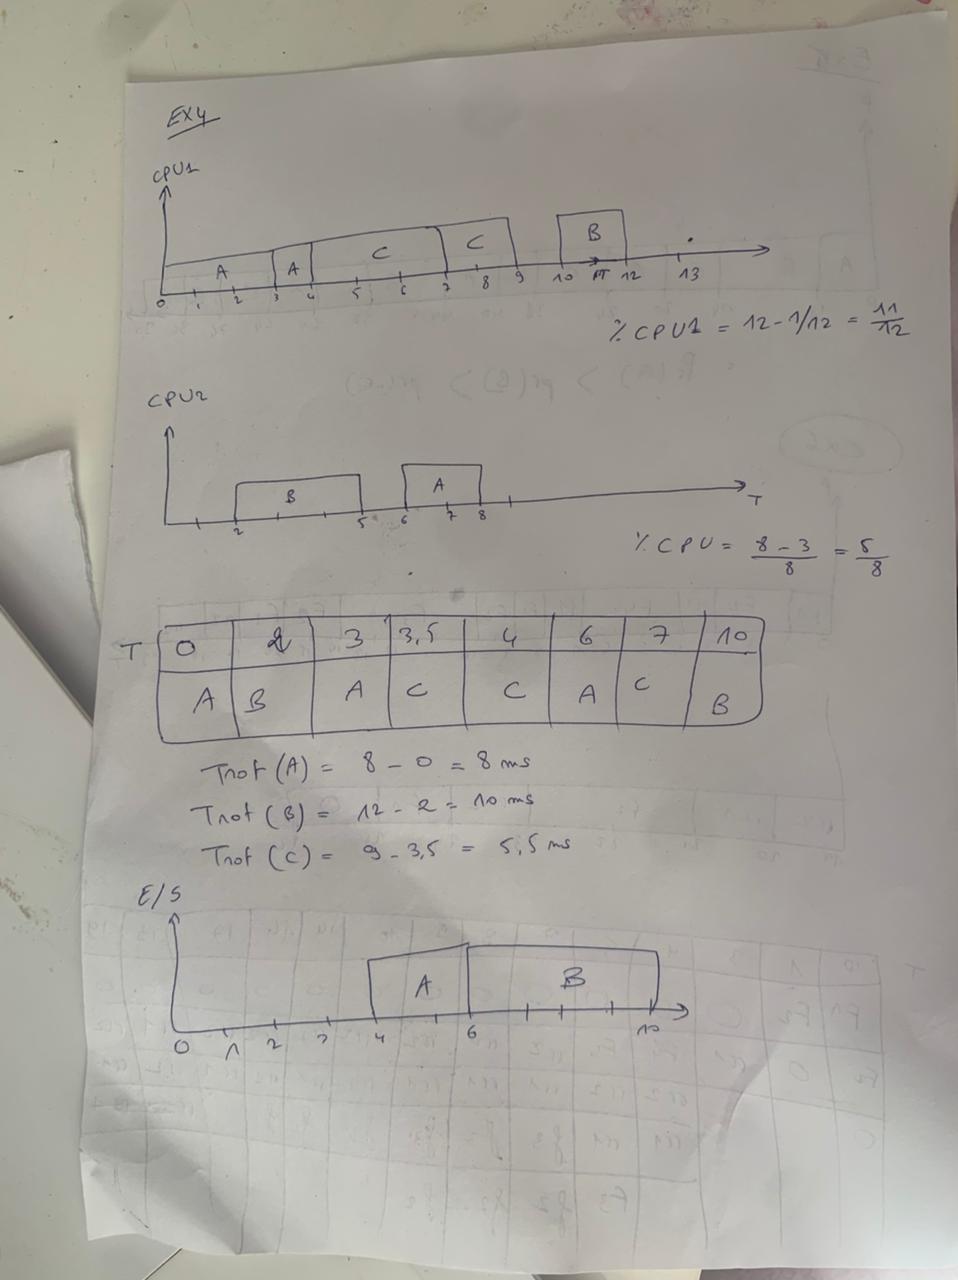 EX4
CPU1
A A C C B
0 1 2 3 4 5 6 7 8 9 10 12 13
% CPU1 = 12-1/12 = 11/12
CPU2
B A
2 5 6 7 8 T
% CPU = 8-3/8 = 5/8
T 0 2 3 3,5 4 6 7 10
A B A C C A C B
Trot (A) = 8 - 0 = 8 ms
Trot (B) = 12 - 2 = 10 ms
Trot (C) = 9 - 3,5 = 5,5 ms
E/S
A B
0 1 2 3 4 6 10